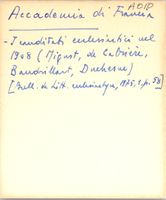 Accademia di Francia A010
- I candidati ecclesiastici nel
1908 (Mignot, de Cabrière,
Baudrillart, Duchesne)
[Bull. de Litt. ecclésiastique, 1975, 1, p. 58]